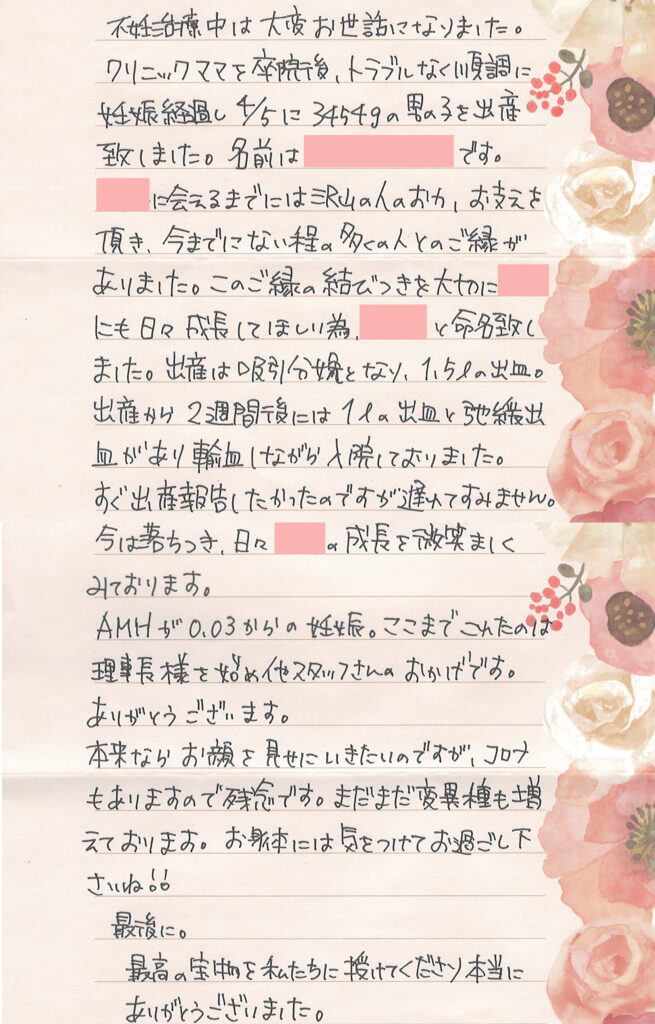 不妊治療中は大変お世話になりました。
クリニックママを卒院後、トラブルなく順調に
妊娠経過し4/5に3454gの男の子を出産
致しました。名前は です。
に会えるまでには沢山の人のお力、お支えを
頂き、今までにない程の多くの人とのご縁が
ありました。このご縁の結びつきを大切に
にも日々成長してほしい為、 と命名致し
ました。出産は吸引分娩となり、1.5ℓの出血。
出産から2週間後には1ℓの出血と弛緩出
血があり輸血しながら入院しておりました。
すぐ出産報告したかったのですが遅れてすみません。
今は落ちつき、日々 の成長を微笑ましく
みております。
AMHが0.03からの妊娠。ここまでこれたのは
理事長様を始め他スタッフさんのおかげです。
ありがとうございます。
本来ならお顔を見せにいきたいのですが、コロナ
もありますので残念です。まだまだ変異種も増
えております。お身体には気をつけてお過ごし下
さいね!!
最後に。
最高の宝物を私たちに授けてくださり本当に
ありがとうございました。